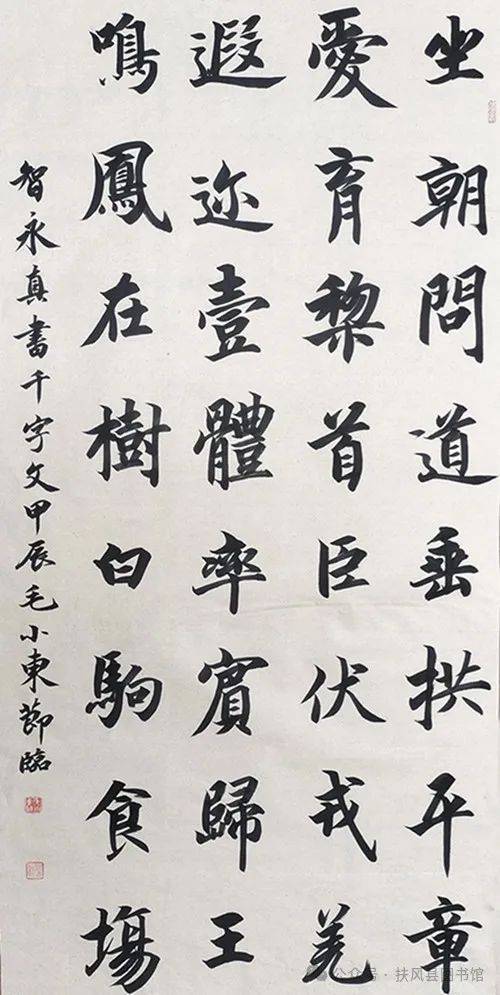 坐朝問道垂拱平章
愛育黎首臣伏戎羌
遐迩壹體率賓歸王
鳴鳳在樹白駒食場
智永真書千字文甲辰毛小東節臨
公众号·扶风县图书馆